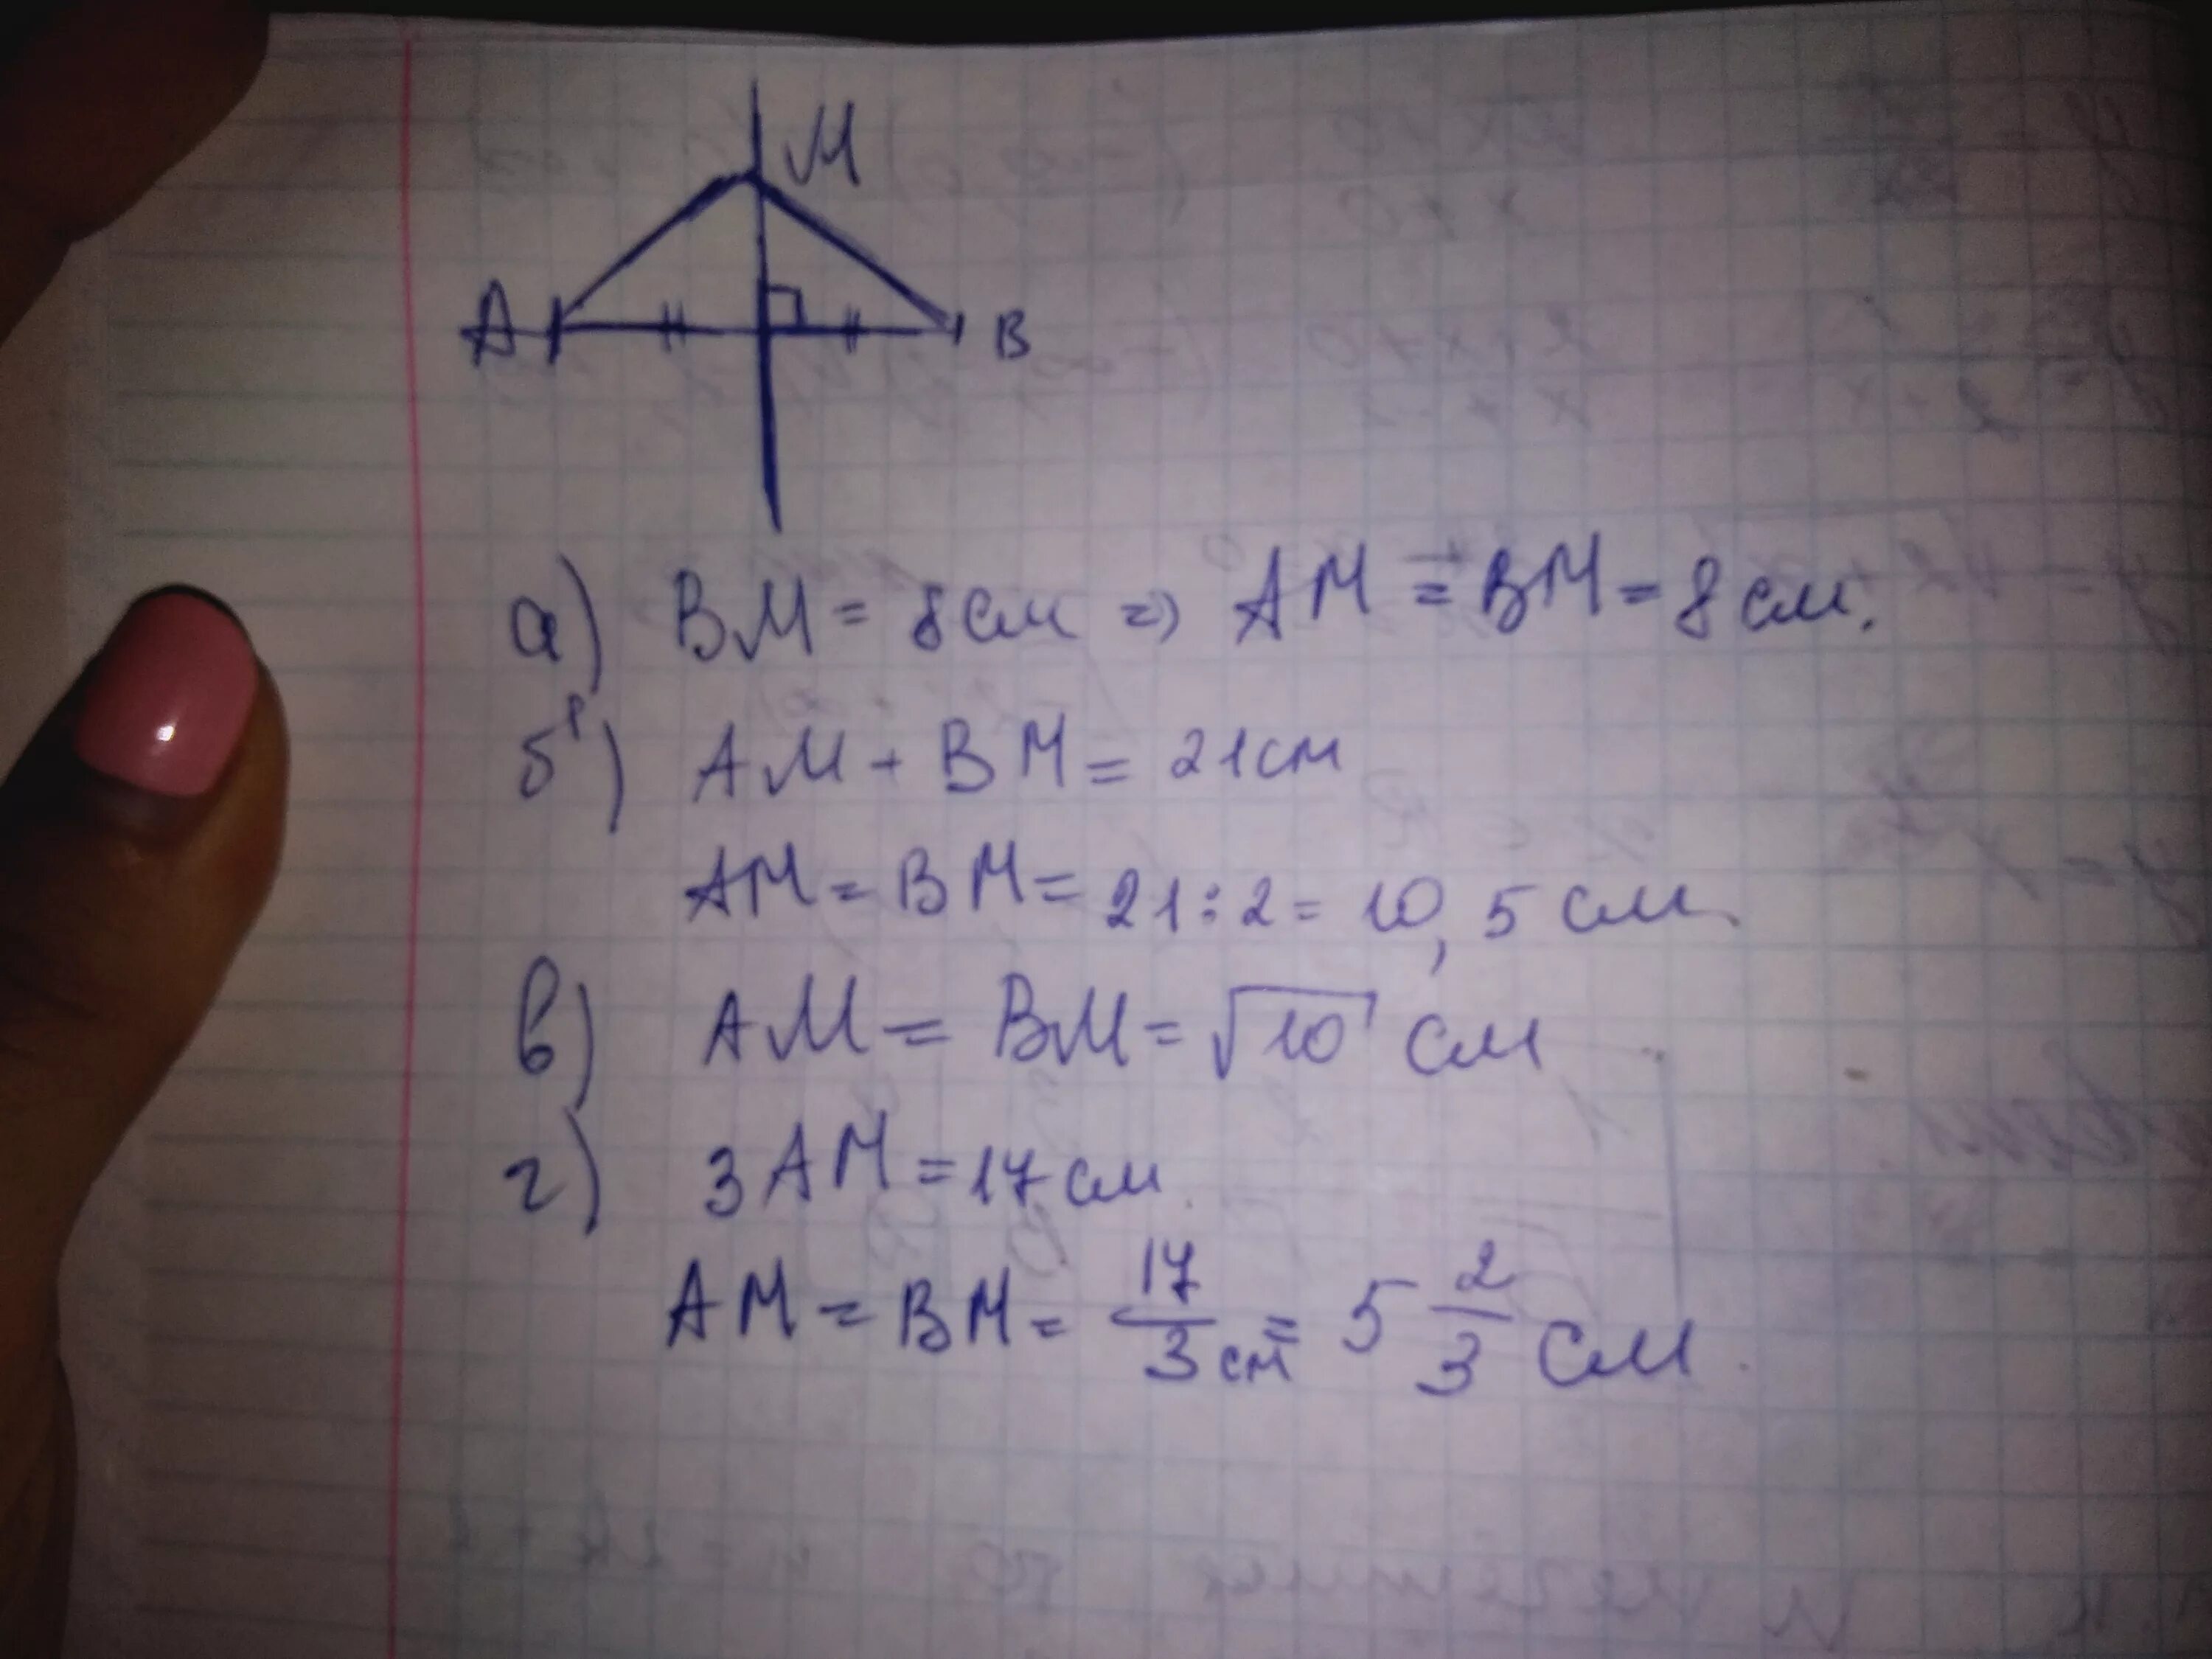 M
A
B
а) BM = 8 см ⇒ AM = BM = 8 см.
б) AM + BM = 21 см
AM = BM = 21 : 2 = 10,5 см.
в) AM = BM = √10 см
г) 3AM = 17 см.
AM = BM = 17/3 см = 5 2/3 см.